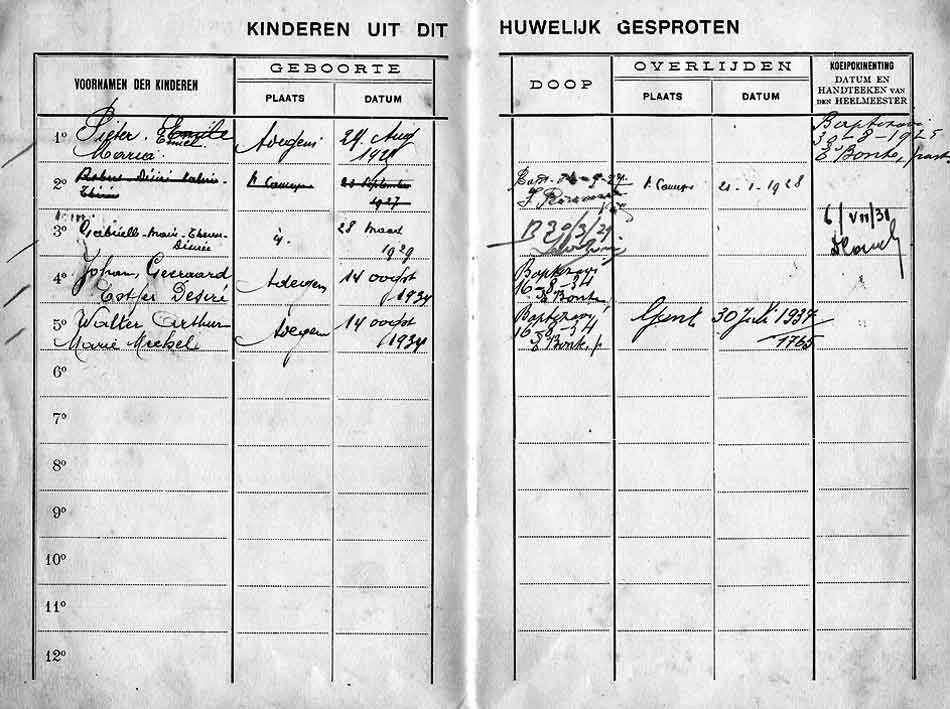 KINDEREN UIT DIT HUWELIJK GESPROTEN
VOORNAMEN DER KINDEREN
GEBOORTE
PLAATS
DATUM
DOOP
OVERLIJDEN
PLAATS
DATUM
KOEIPOKINENTING
DATUM EN
HANDTEEKEN VAN
DEN HEELMEESTER
1º Pieter. Emile
Emiel.
Maria. Adegem 24. Aug
Baptizavi
30-8-1925
E Bonte, past
2º
September
1927
21-1-1928
3º Gabrielle-Marie-
Désirée
id. 28 maart
1929
B 30/3/29
6/VII/31
4º Johan, Geeraard
Esther Desiré
Adegem 14 oogst
1934
Baptizavi
16-8-34
E Bonte
5º Walter Arthur
Marie Michel
Adegem 14 oogst
1934
Baptizavi
16-8-34
E Bonte, p
Gent 30 Juli 1937
1765
6º
7º
8º
9º
10º
11º
12º